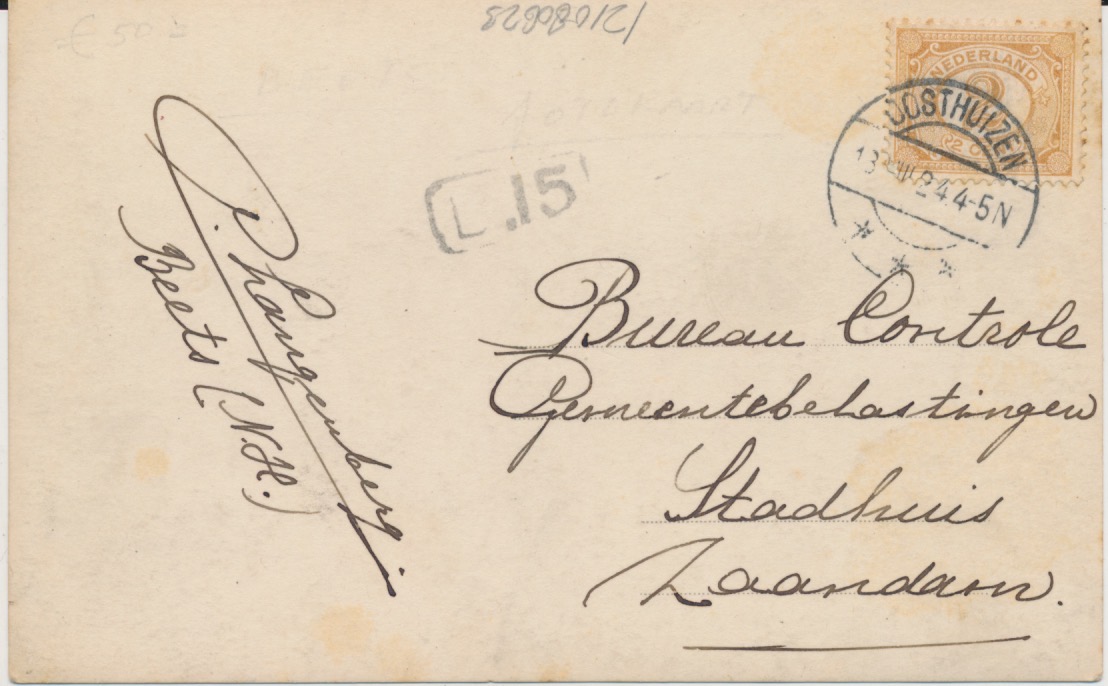 € 50
121080623
FOTOKAART
NEDERLAND
2
OOSTHUIZEN
13 VIII 24 4-5N
L.15
Bureau Controle
Gemeentebelastingen
Stadhuis
Zaandam.
P. Langenberg
Beets (N.H.)